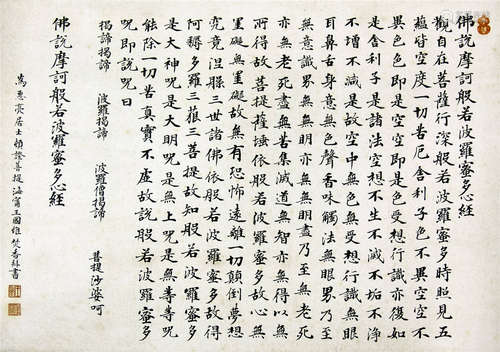 佛說摩訶般若波羅蜜多心經
觀自在菩薩行深般若波羅蜜多時照見五
蘊皆空度一切苦厄舍利子色不異空空不
異色色即是空空即是色受想行識亦復如
是舍利子是諸法空想不生不滅不垢不淨
不增不減是故空中無色無受想行識無眼
耳鼻舌身意無色聲香味觸法無眼界乃至
無意識界無無明亦無無明盡乃至無老死
亦無老死盡無苦集滅道無智亦無得以無
所得故菩提薩埵依般若波羅蜜多故心無
罣礙無罣礙故無有恐怖遠離一切顛倒夢想
究竟涅槃三世諸佛依般若波羅蜜多故得
阿耨多羅三藐三菩提故知般若波羅蜜多
是大神呪是大明呪是無上呪是無等等呪
能除一切苦真實不虛故說般若波羅蜜多
呪即說呪曰
揭諦揭諦 波羅揭諦 波羅僧揭諦 菩提沙婆呵
佛說摩訶般若波羅蜜多心經
居士頓證菩提海甯王國維焚香拜書